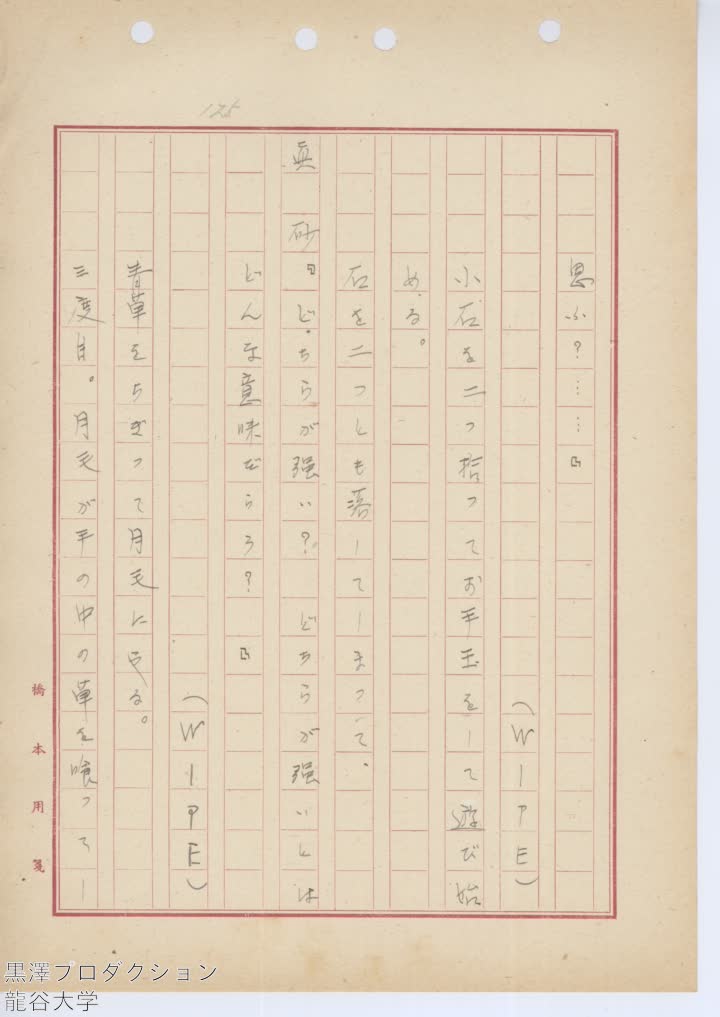 125
思ふ？……』
（WIPE）
小石を二つ拾つてお手玉をして遊び始
める。
石を二つとも落してしまつて、
眞砂『どちらが强い？　どちらが强いとは
どんな意味だらう？』
（WIPE）
青草をちぎつて月毛にやる。
三度目。月毛が手の中の草を喰つてし
橋本用箋
黒澤プロダクション
龍谷大学